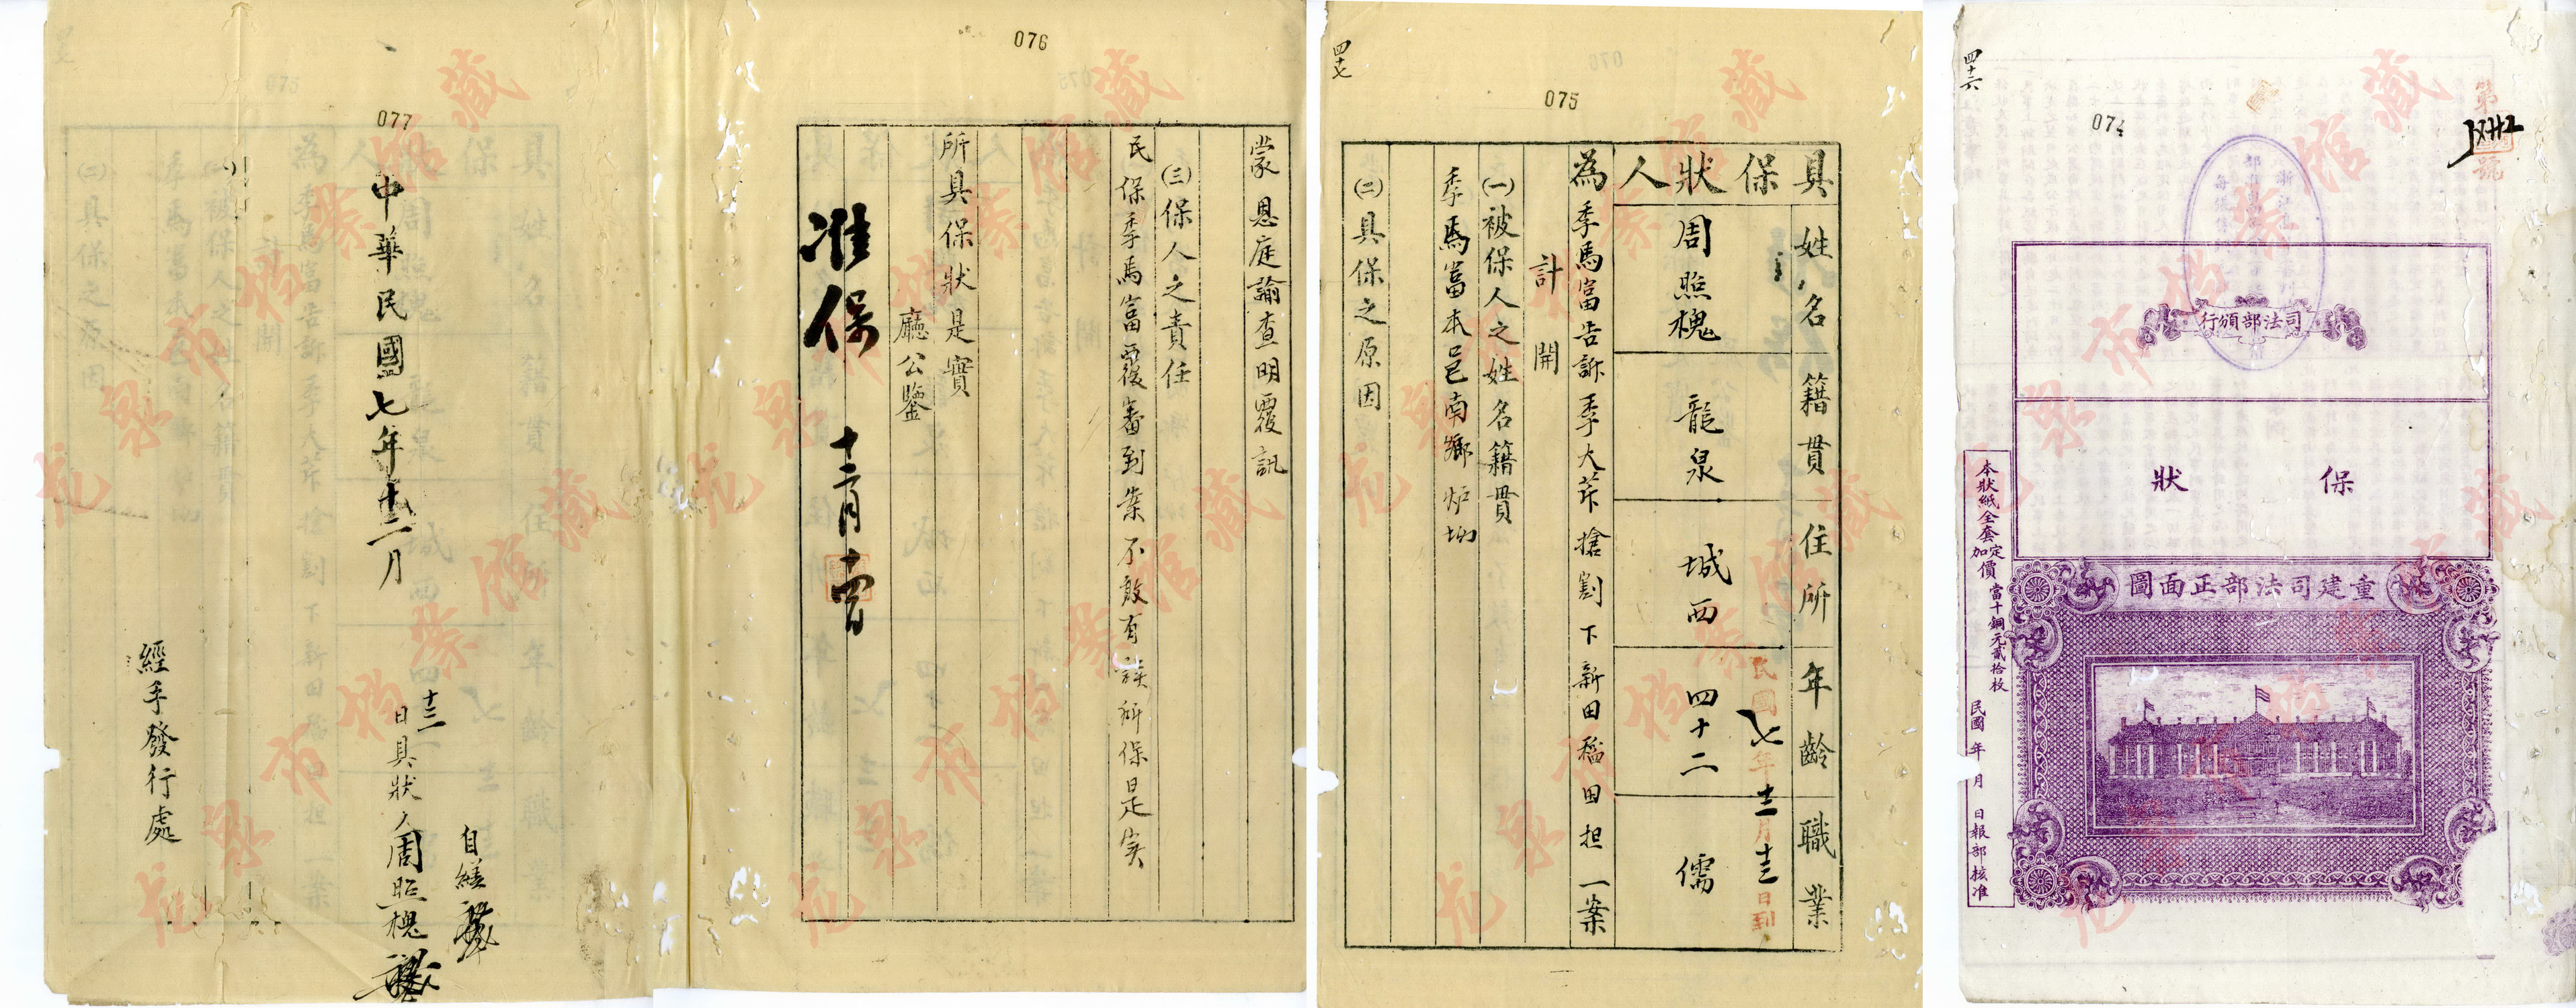 四十六
074
第
號
司法部頒行
保狀
重建司法部正面圖
本狀紙全套定價當十銅元貳拾枚
加
民國 年 月 日報部核准
四十七
075
具保狀人
姓名 籍貫 住所 年齡 職業
周照槐 龍泉 城西 四十二 儒
民國七年十二月十三日到
為季馬富告訴季大茂搶割下新田稻田担一案
計開
㈠被保人之姓名籍貫
季馬富本邑南鄉炉坳
㈡具保之原因
076
蒙恩庭諭查明覆訊
㈢保人之責任
民保季馬富覆審到案不敢有誤所保是实
所具保狀是實
廳公鑒
准保 十二月十四日
077
中華民國七年十二月
十三日具狀人周照槐
自繕
經手發行處
龙泉市档案馆藏